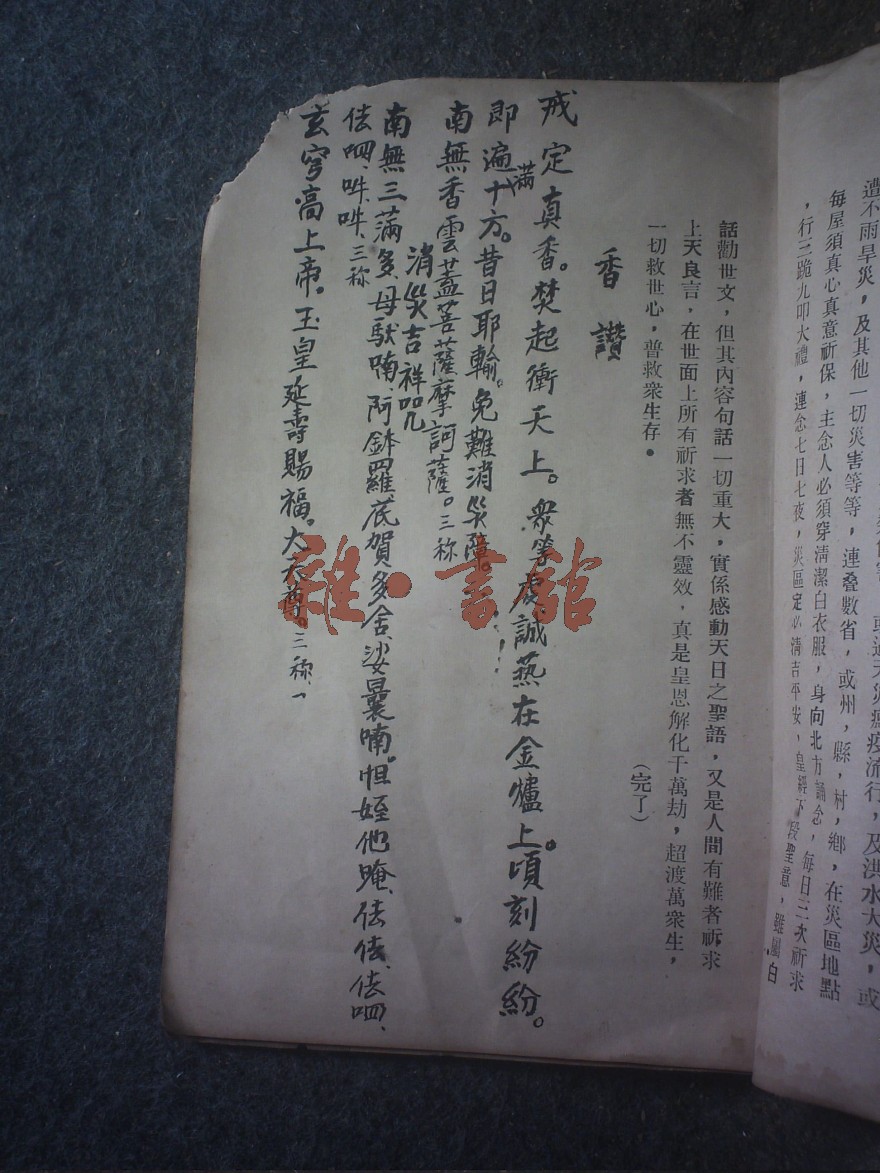 遭不雨旱災，及其他一切災害等等，連叠數省，或州，縣，村，鄉，在災區地點
每屋須真心真意祈保，主念人必須穿清潔白衣服，身向北方誦念，每日三次祈求
，行三跪九叩大禮，連念七日七夜，災區定必清吉平安，皇經下段聖意，雖屬白
話勸世文，但其內容句話一切重大，實係感動天日之聖語，又是人間有難者祈求
上天良言，在世面上所有祈求者無不靈效，真是皇恩解化千萬劫，超渡萬衆生，
一切救世心，普救衆生存。
（完了）
香讚
戒定真香。焚起衝天上。衆等虔誠爇在金爐上。頃刻紛紛。
即遍滿十方。昔日耶輸。免難消災障。
南無香雲蓋菩薩摩訶薩。三称
消災吉祥咒
南無三滿多、母馱喃、阿鉢囉、底賀多舍、娑曩喃。怛姪他唵、佉佉、佉呬、
佉呬、吽、吽、三称
玄穹高上帝。玉皇延壽賜福。大天尊。三称、
雜·書館